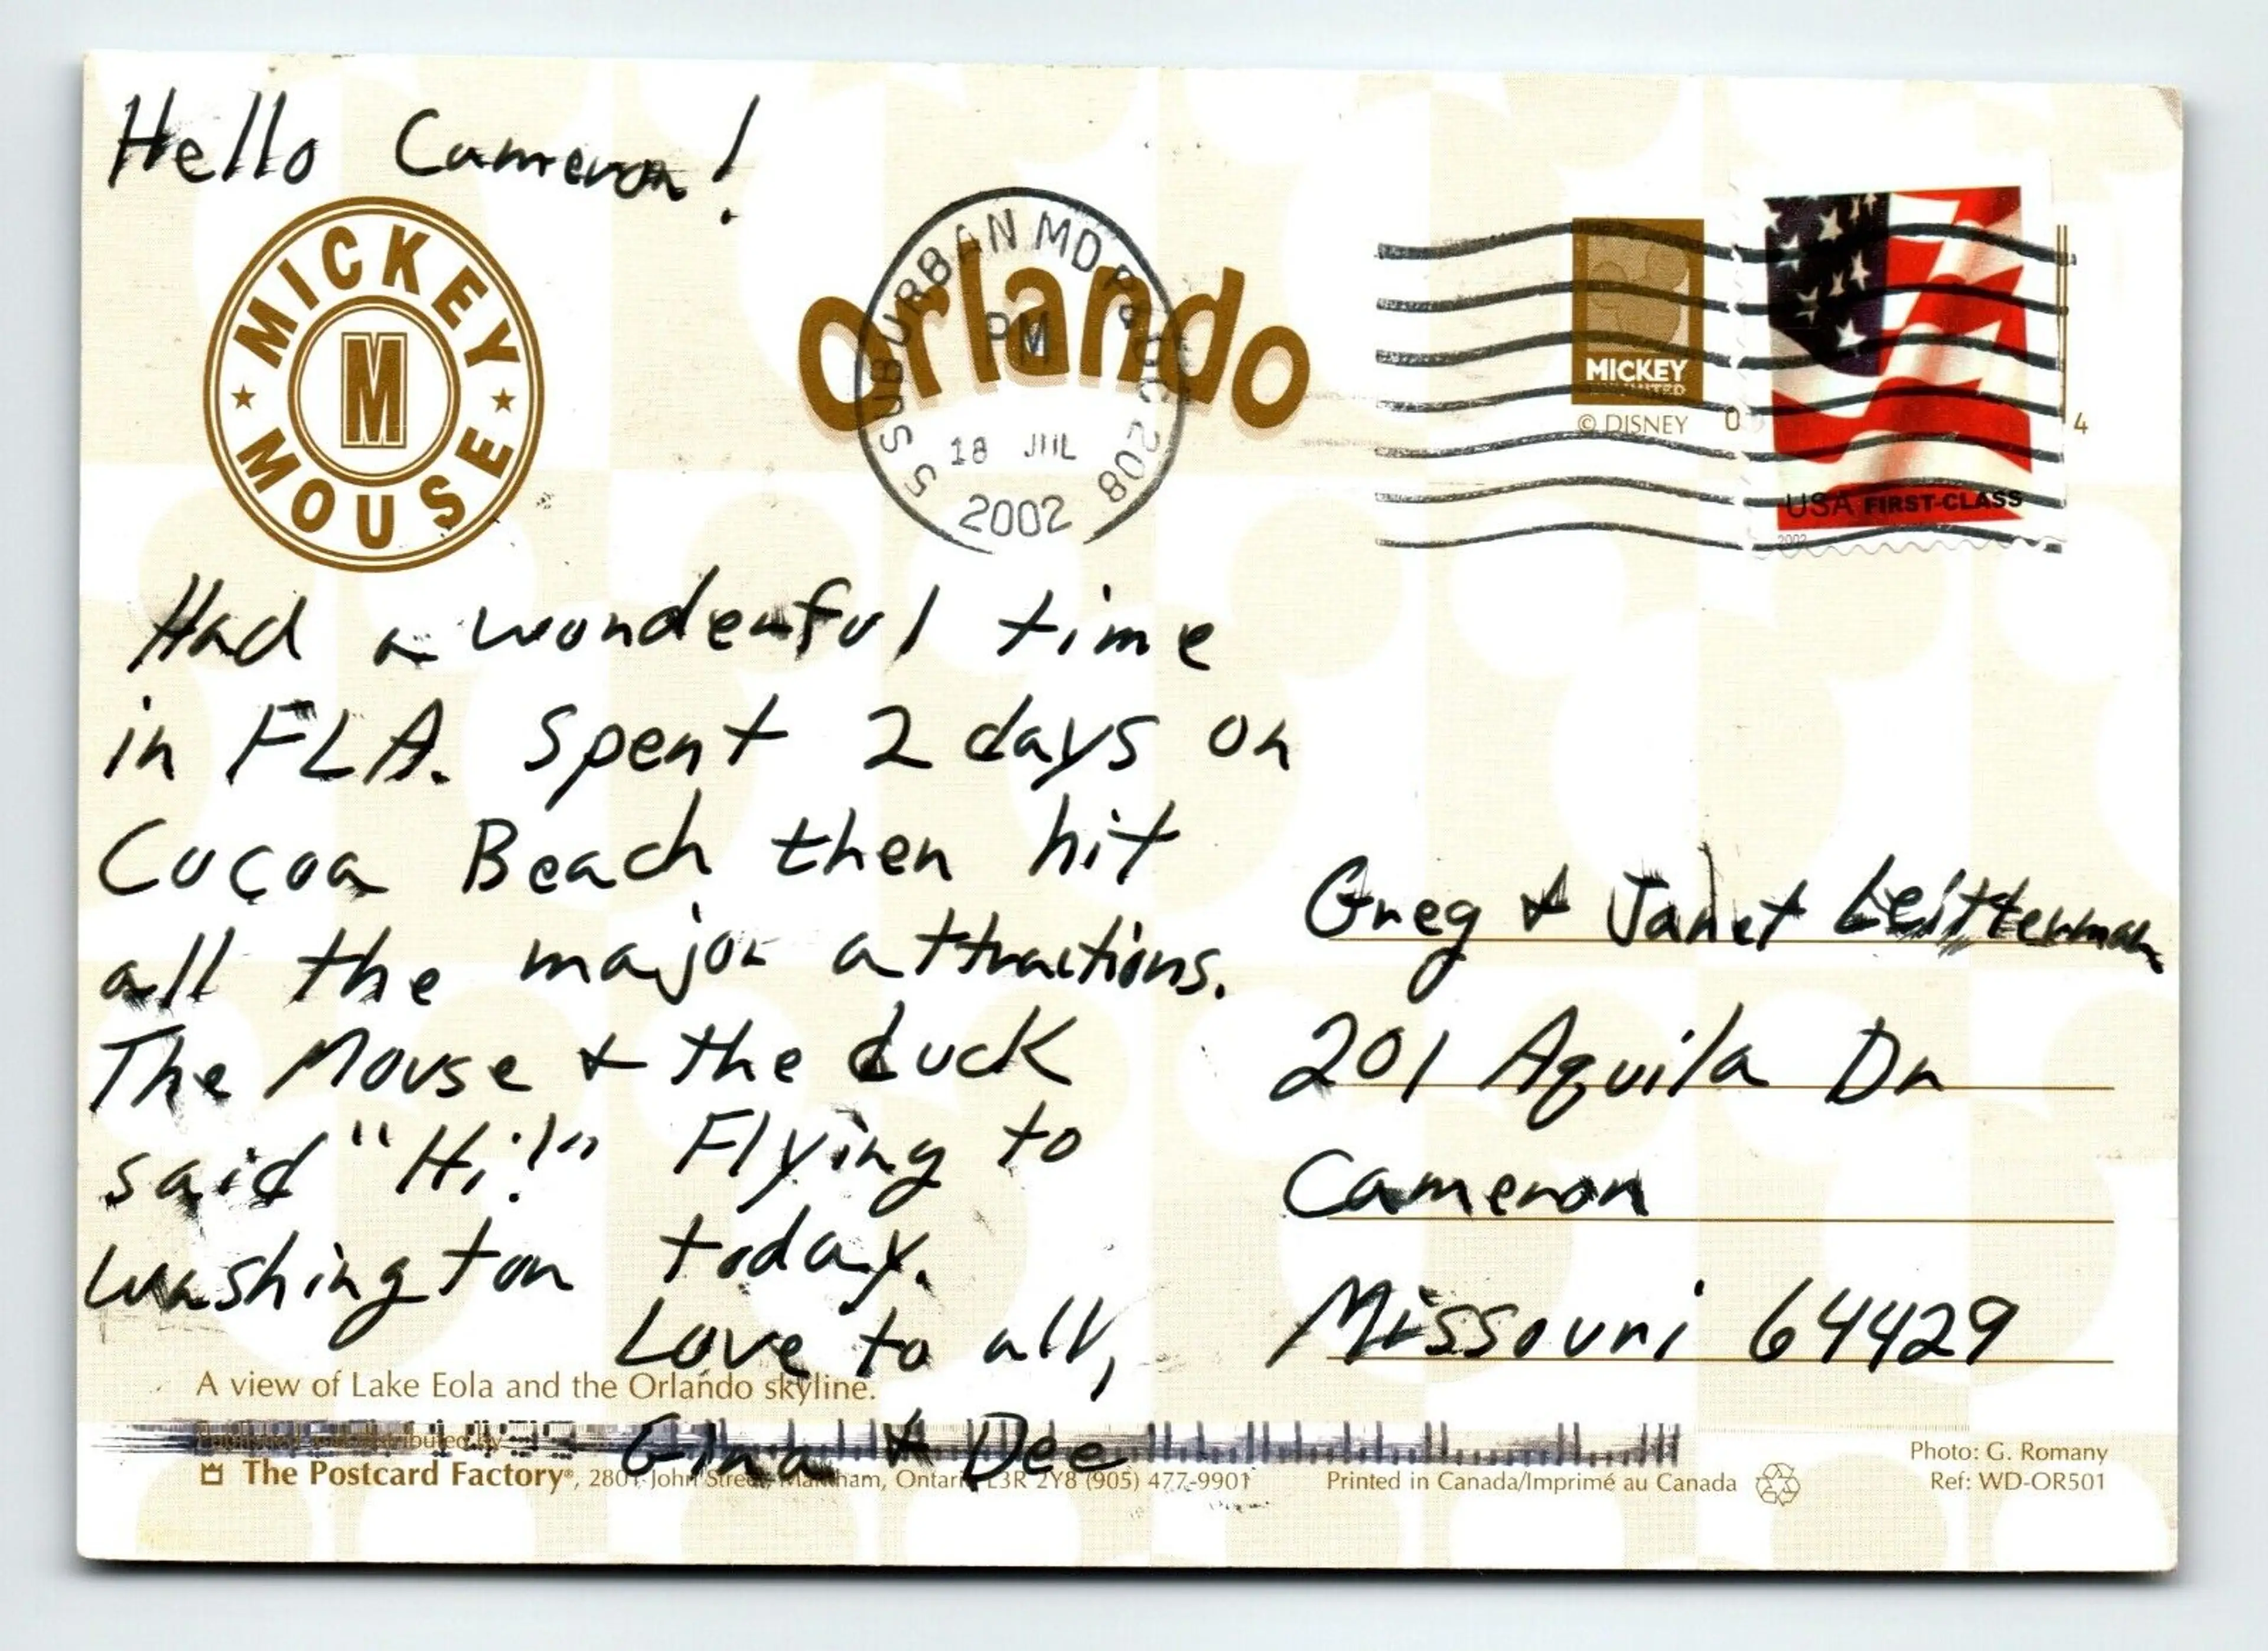 Hello Cameron!
MICKEY
M
MOUSE
Orlando
SUBURBAN MD P&DC 208
PM
18 JUL
2002
MICKEY
UNLIMITED
© DISNEY
0
4
USA FIRST-CLASS
2002
Had a wonderful time
in FLA. Spent 2 days on
Cocoa Beach then hit
all the major attractions.
The Mouse & the duck
said "Hi!" Flying to
Washington today.
Love to all,
Gina & Dee
Greg & Janet Leitterman
201 Aquila Dr
Cameron
Missouri 64429
A view of Lake Eola and the Orlando skyline.
Published and distributed by
The Postcard Factory®, 2801 John Street, Markham, Ontario L3R 2Y8 (905) 477-9901
Printed in Canada/Imprimé au Canada
Photo: G. Romany
Ref: WD-OR501